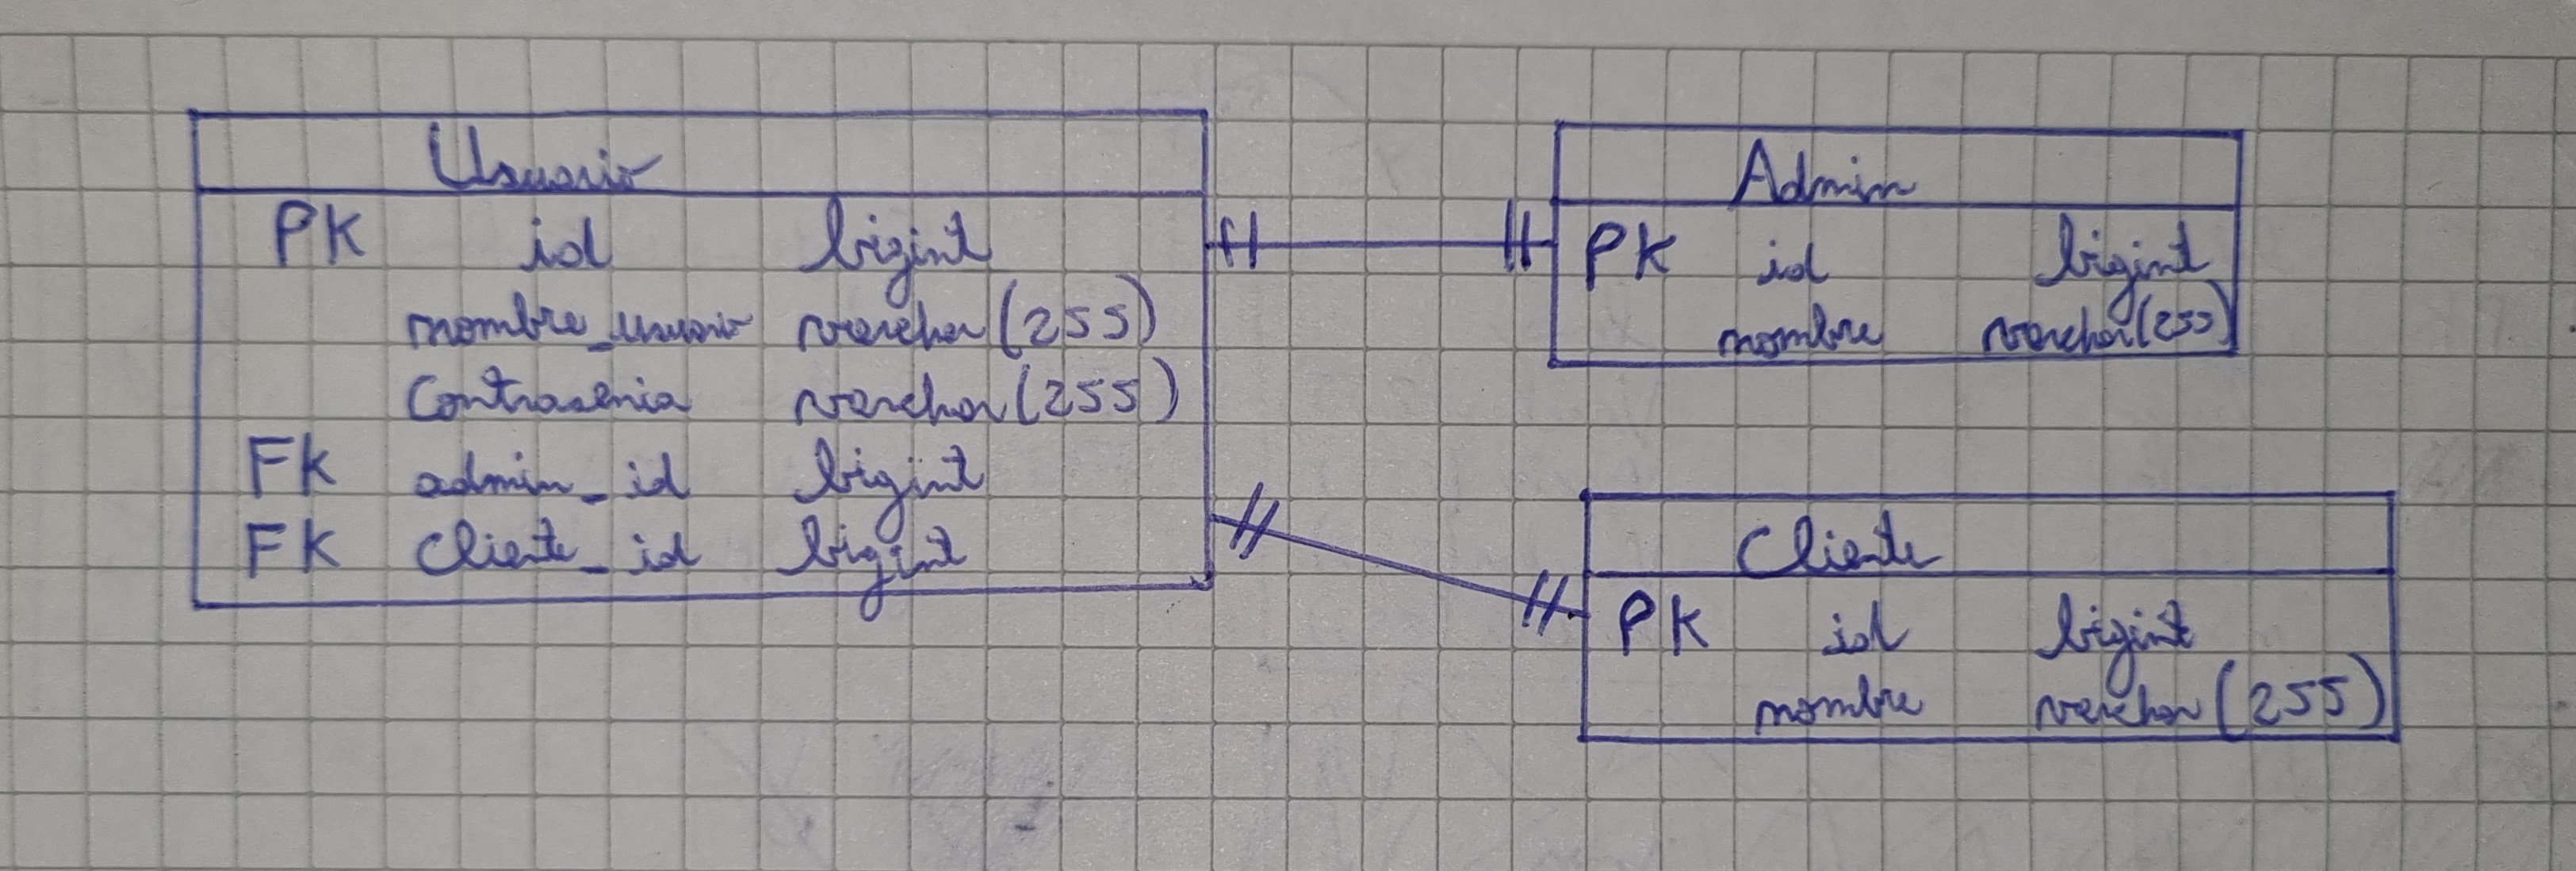 Usuario
PK id bigint
nombre_usuario varchar(255)
Contrasenia varchar(255)
FK admin_id bigint
FK cliente_id bigint
Admin
PK id bigint
nombre varchar(255)
Cliente
PK id bigint
nombre varchar(255)